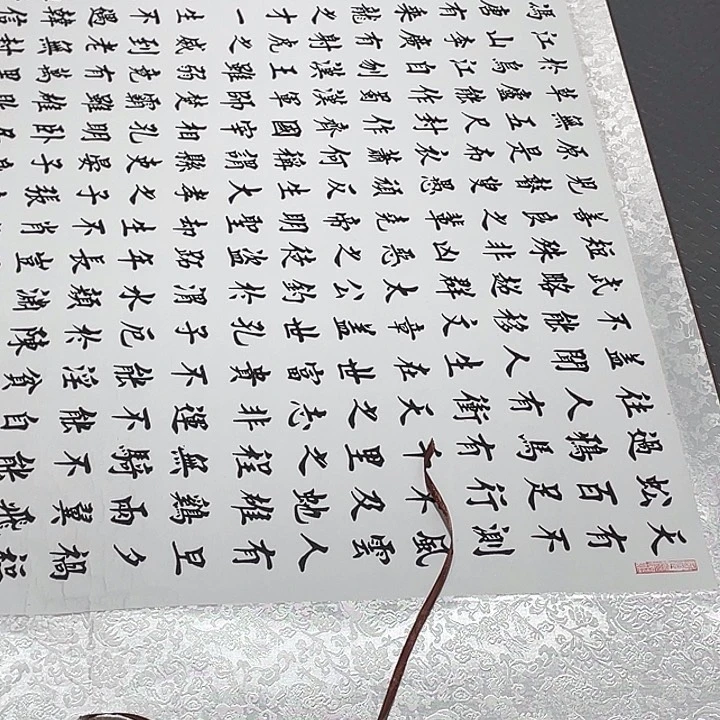 天有不測風雲人有旦夕禍福
蚣百足行不及蛇雄鷄兩翼飛
過鴉馬有千里之程無騎不能
往人有衝天之志非運不能自
蓋聞人生在世富貴不能淫貧
不能移文章蓋世孔子厄於陳
武略超群太公釣於渭水顏淵
短殊非凶惡之徒盜跖年長豈
善良之輩堯帝明聖却生不肖
兒瞽叟愚頑反生大孝之子張
原是布衣蕭何稱謂縣吏晏子
無五尺封作齊國宰相孔明卧
草廬能作蜀漢軍師楚霸雖雄
於烏江自刎漢王雖弱竟有萬里
江山李廣有射虎之威到老無封
馮唐有乘龍之才一生不遇韓信